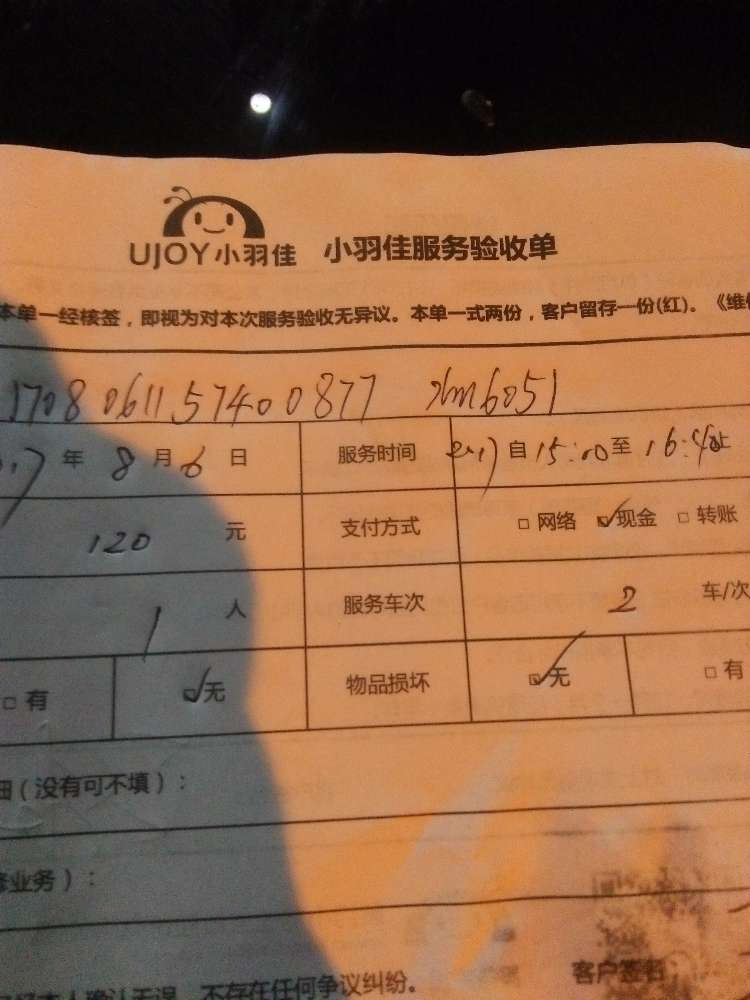 UJOY小羽佳 小羽佳服务验收单
本单一经核签，即视为对本次服务验收无异议。本单一式两份，客户留存一份(红)。《维
1708061157400877 xm6051
年 8 月 6 日 服务时间 自 15:00 至 16:40
120 元 支付方式 □ 网络 ☑ 现金 □ 转账
1 人 服务车次 2 车/次
□ 有 ☑ 无 物品损坏 ☑ 无 □ 有
细（没有可不填）：
修业务）：
客户签名
本人确认无误，不存在任何争议纠纷。